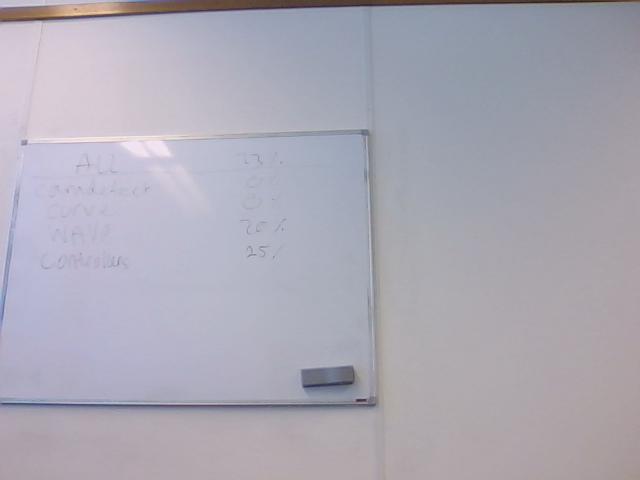 ALL 33%
camdetect 0%
curve 0%
WAVE 20%
Controllers 25%